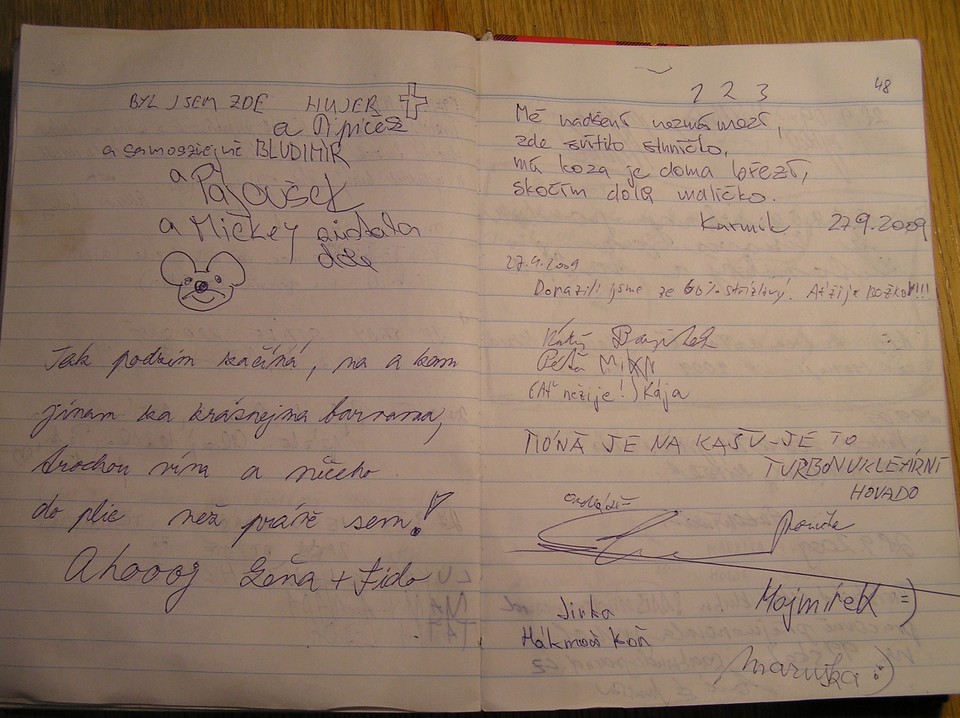 BYL JSEM ZDE HUJER
a
a samozřejmě BLUDIMÍR
a Páťoušek
a Mickey
dole
Jak podzim začíná, na a kam
jinam za krásnejma barvama,
trochou vína a ničeho
do plic než právě sem!
Ahooog Zoňa + Fido
48
1 2 3
Mé nadšení nezná mezí,
zde svítilo sluníčko,
má koza je doma březí,
skočím dolů maličko.
Karmik 27.9.2009
27.9.2009
Dorazili jsme ze 60% střízlivý. Ať žije BOŽKOV!!!
Péťa
(Ať nežije!) Kája
MÓŇA JE NA KAŠU-JE TO
TURBONUKLEÁRNÍ
HOVADO
Jirka
Mojmírek =)
Hákmooš Koň
Maruška :)